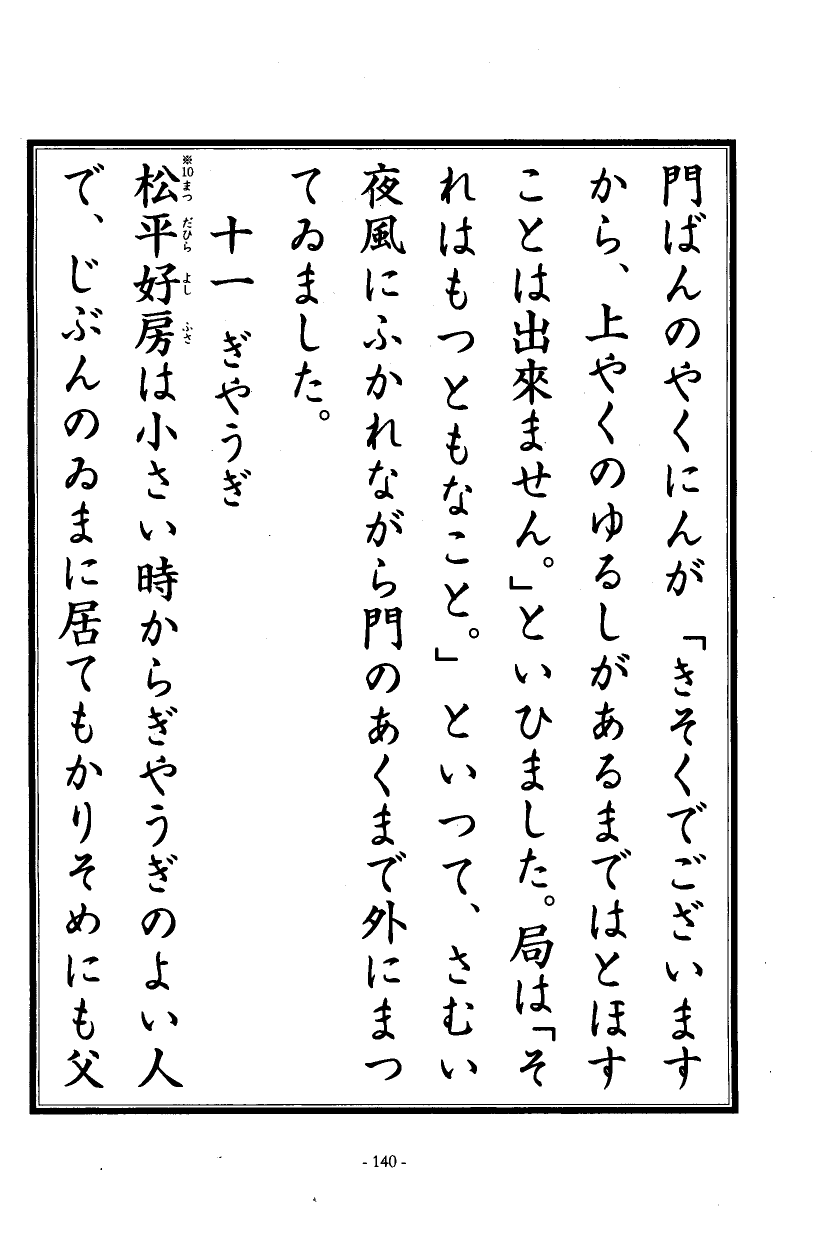 門ばんのやくにんが「きそくでございます
から、上やくのゆるしがあるまではとほす
ことは出來ません。」といひました。局は「そ
れはもつともなこと。」といつて、さむい
夜風にふかれながら門のあくまで外にまつ
てゐました。
十一 ぎやうぎ
※10まつ だひら よし ふさ
松平好房は小さい時からぎやうぎのよい人
で、じぶんのゐまに居てもかりそめにも父
- 140 -